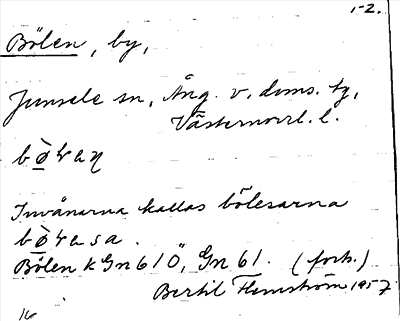 1-2.
Bölen, by,
Junsele sn, Ång. v. doms. tg,
Västernorrl. l.
Invånarna kallas bölesarna
Bölen k Gn 61 Ö, Gn 61. (forts.)
Bertil Flemström 1957